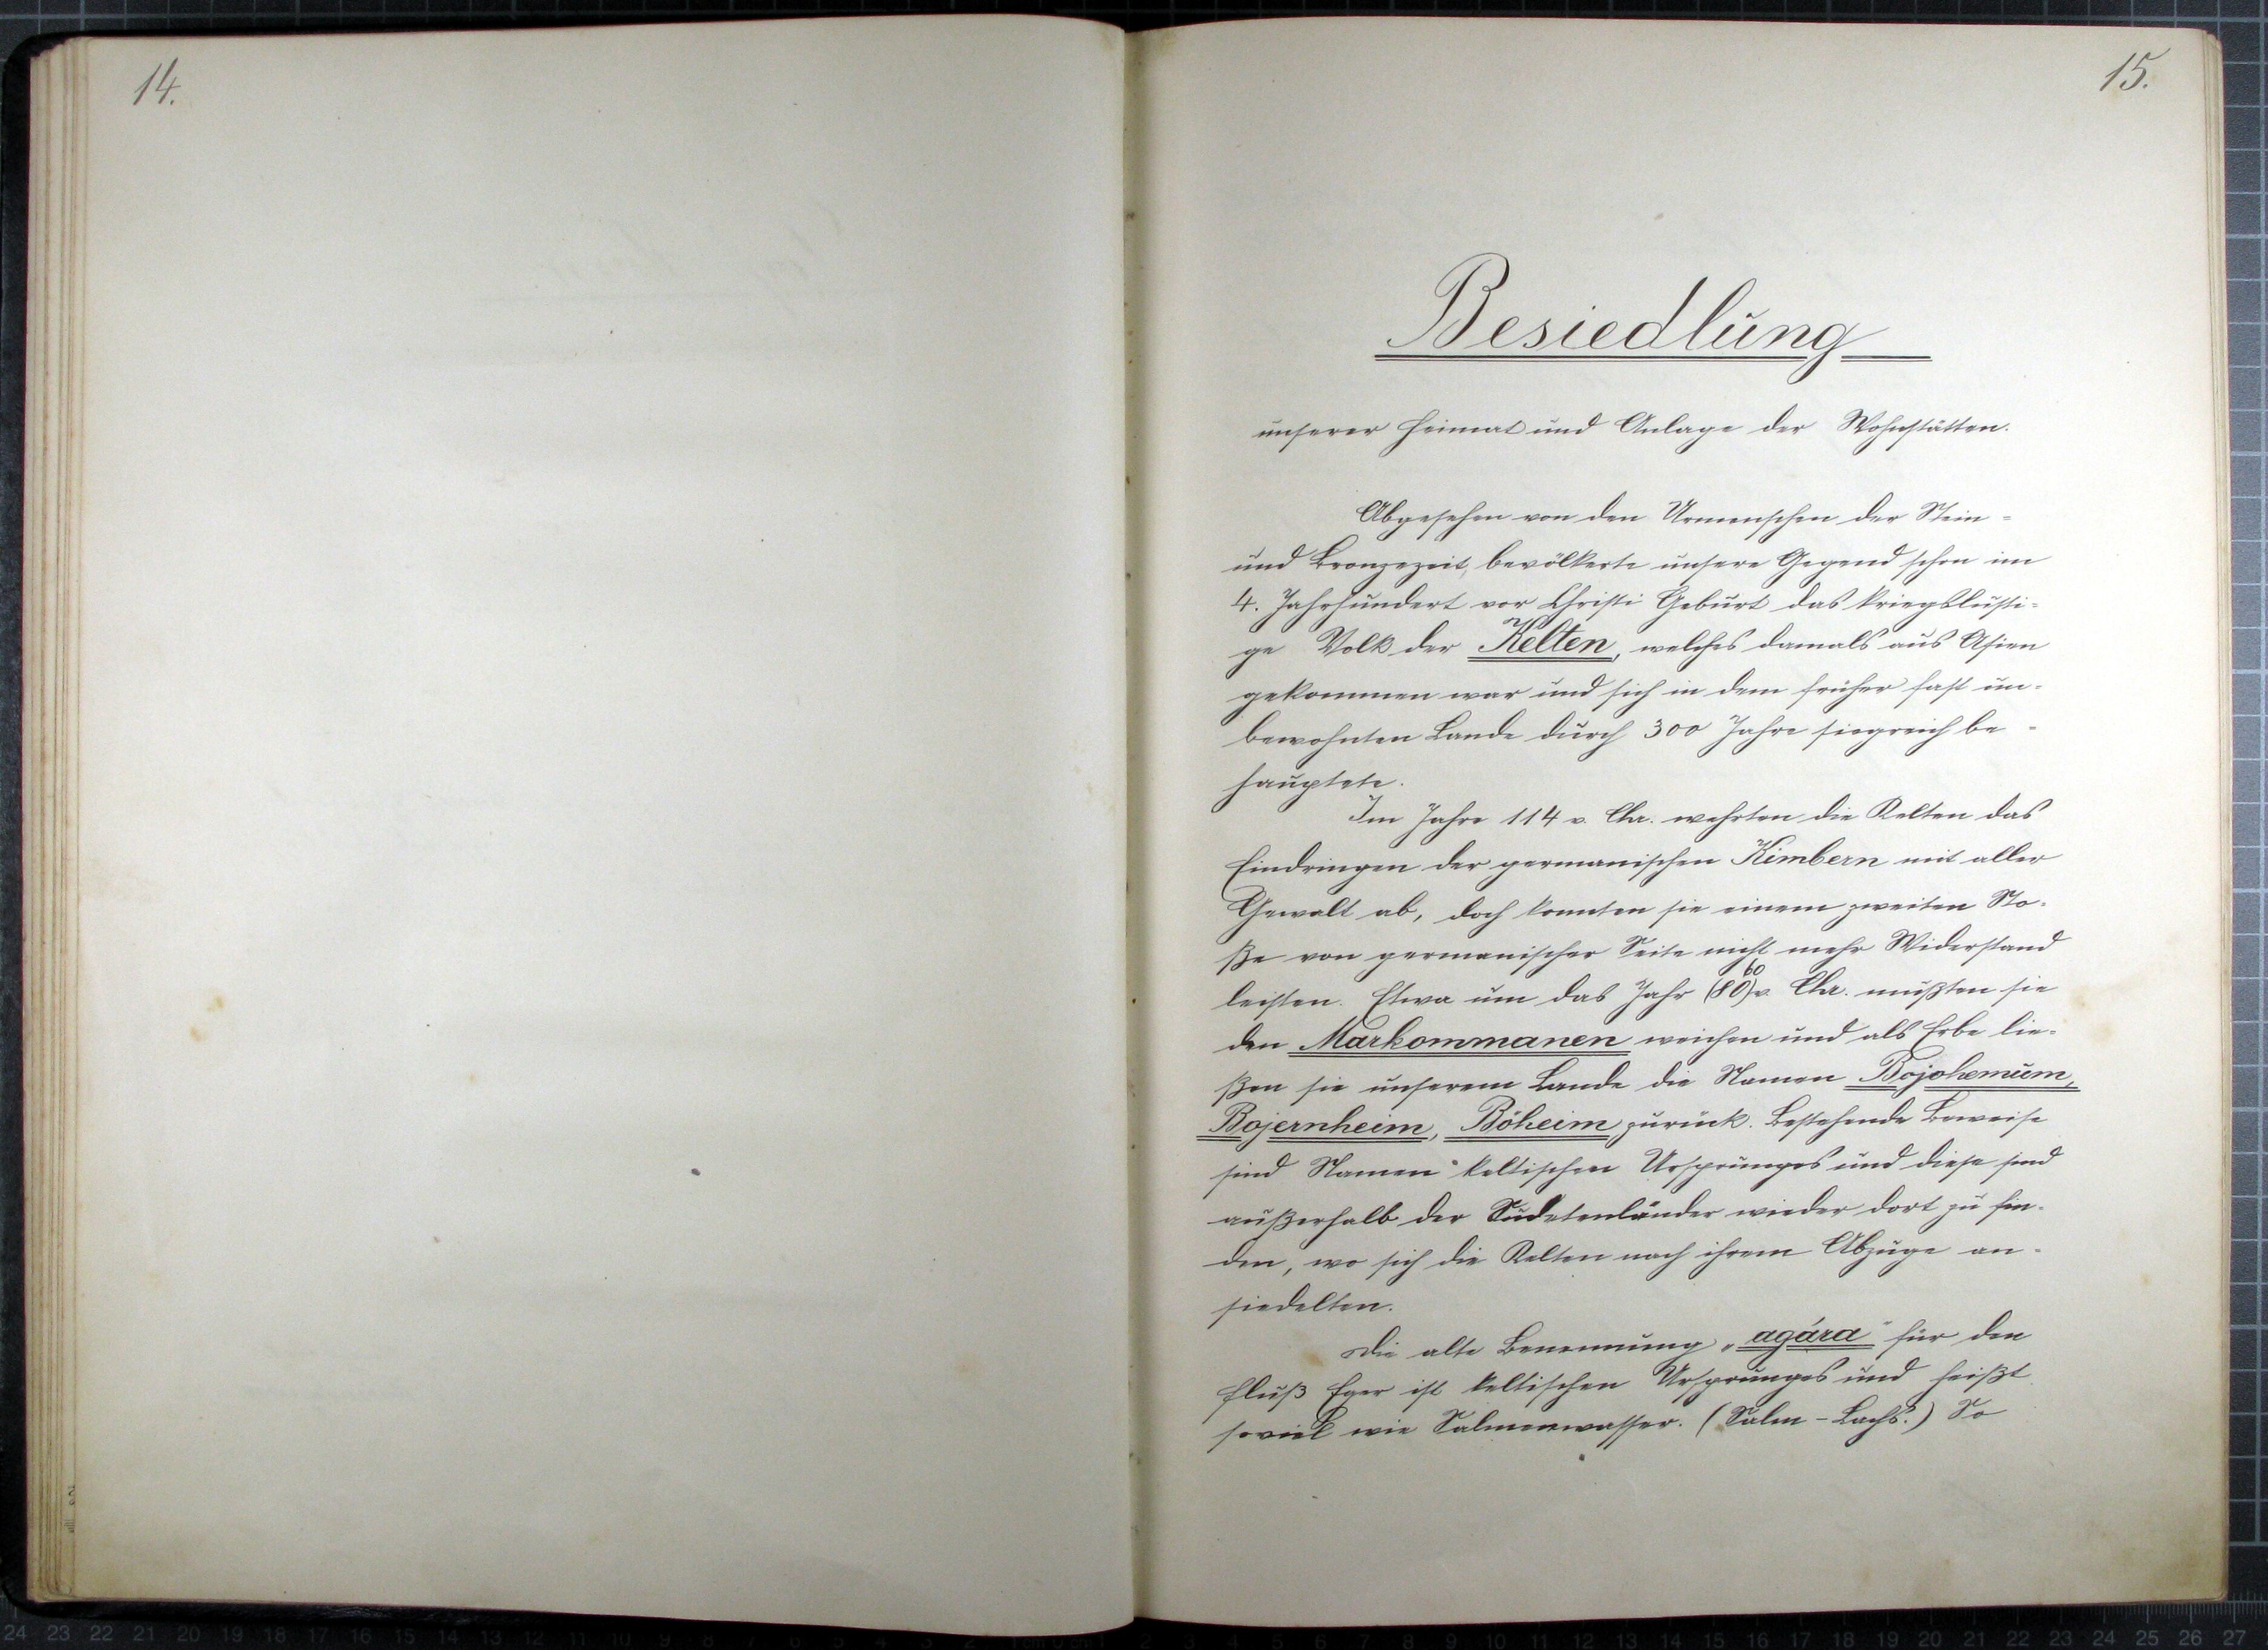 14.
15.
Besiedlung
unserer Heimat und Anlage der Wohnstätten.
Abgesehen von den Urmenschen der Stein-
und Bronzezeit, bevölkerte unsere Gegend schon im
4. Jahrhundert vor Christi Geburt das kriegslusti-
ge Volk der Kelten, welches damals aus Asien
gekommen war und sich in dem früher fast un-
bewohnten Lande durch 300 Jahre siegreich be-
hauptete.
Im Jahre 114 v. Chr. wehrten die Kelten das
Eindringen der germanischen Kimbern mit aller
Gewalt ab, doch konnten sie einem zweiten Sto-
ße von germanischer Seite nicht mehr Widerstand
60
leisten. Etwa um das Jahr (80) v. Chr. mußten sie
den Markommanen weichen und als Erbe lie-
ßen sie unserem Lande die Namen Bojohemum,
Bojernheim, Böheim zurück. Bestehende Beweise
sind Namen keltischen Ursprunges und diese sind
außerhalb der Sudetenländer wieder dort zu fin-
den, wo sich die Kelten nach ihrem Abzuge an-
siedelten.
Die alte Benennung „agára" für den
Fluß Eger ist keltischen Ursprunges und heißt
soviel wie Salmenwasser. (Salm - Lachs.) So
24 23 22 21 20 19 18 17 16 15 14 13 12 11 10 9 8 7 6 5 4 3 2 1 cm 0 cm 1 2 3 4 5 6 7 8 9 10 11 12 13 14 15 16 17 18 19 20 21 22 23 24 25 26 27